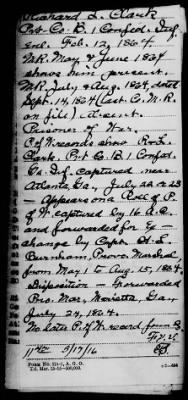 Richard L. Clark
Pvt. Co. B. 1 Confed. Inf.
Enl. Feb. 12, 1864.
MR. May & June 1864
shows him present.
MR. July & Aug. 1864, dated
Sept. 14, 1864 (last C. M. R.
on file) absent.
Prisoner of War.
P. of W. records show R. L.
Clark, Pvt. Co. B 1 Confed.
Ga. Inf. captured near
Atlanta, Ga., July 22 or 23
— Appears on a Roll of P.
of W. captured by 16 A. C.
and forwarded for ex-
change by Capt. H. L.
Burnham, Provo. Marshal,
from May 1 to Aug. 15, 1864.
Disposition — forwarded
Pro. Mar. Marietta, Ga.,
July 24, 1864.
No later P. of W. record found
3/17/16
FORM NO. 121-1, A. G. O.